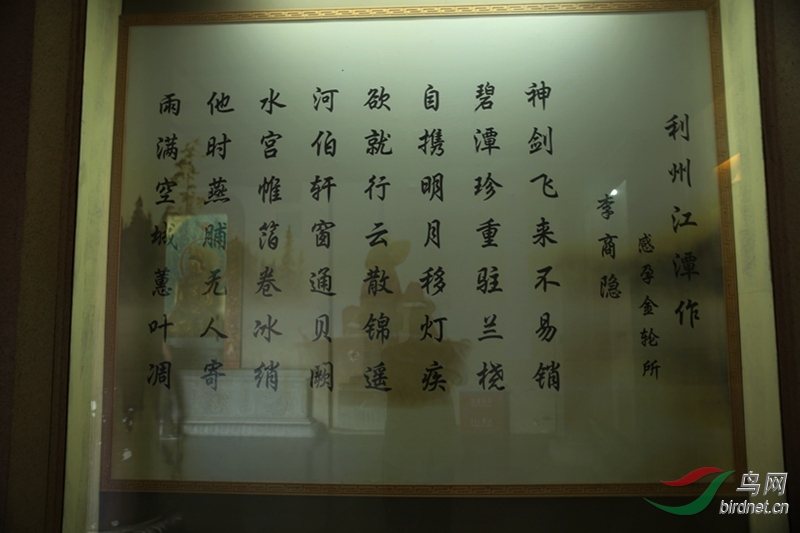 利州江潭作
感孕金轮所
李商隐
神剑飞来不易销
碧潭珍重驻兰桡
自携明月移灯疾
欲就行云散锦遥
河伯轩窗通贝阙
水宫帷箔卷冰绡
他时燕脯无人寄
雨满空城蕙叶凋
鸟网
birdnet.cn